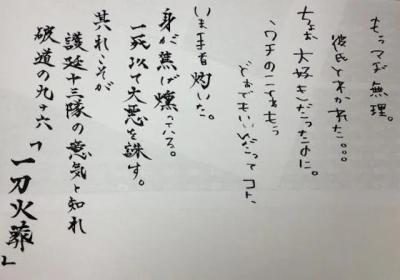 もうマヂ無理。
彼氏とわかれた。。。
ちょお大好きだったのに。
ウチのことゎもう
どおでもいいんだってコト、
いま手首灼いた。
身が焦げ燻っている。
一死以て大悪を誅す。
其れこそが
護廷十三隊の意気と知れ
破道の九十六「
一刀火葬」